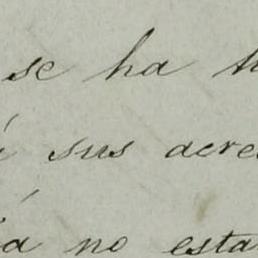 se ha
sus acre
no esta